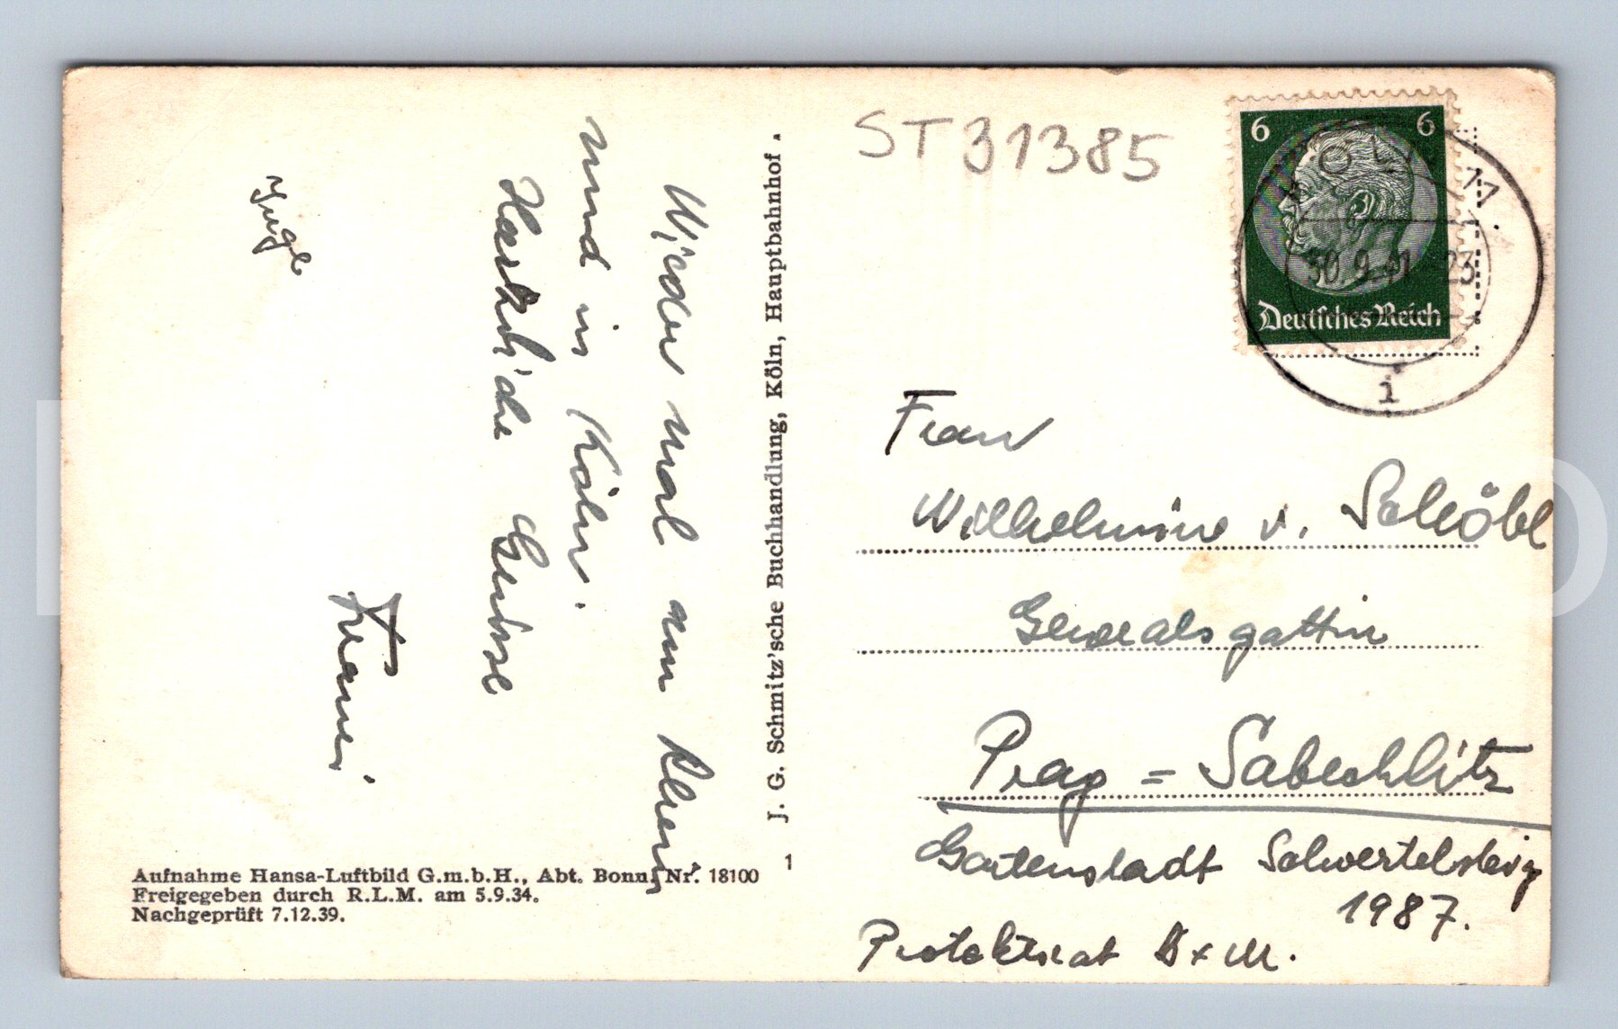 Wieder mal am Rhein
und in Köln.
Herzliche Grüsse
Franzi
J. G. Schmitz'sche Buchhandlung, Köln, Hauptbahnhof.
Aufnahme Hansa-Luftbild G.m.b.H., Abt. Bonn, Nr. 18100
Freigegeben durch R.L.M. am 5.9.34.
Nachgeprüft 7.12.39.
1
ST31385
6 6
Deutsches Reich
KÖLN
30.9.41 23
i
Frau
Wilhelmine v. Schöbl
Generalsgattin
Prag = Sabechlitz
Gartenstadt
1987.
Protektorat B + M.